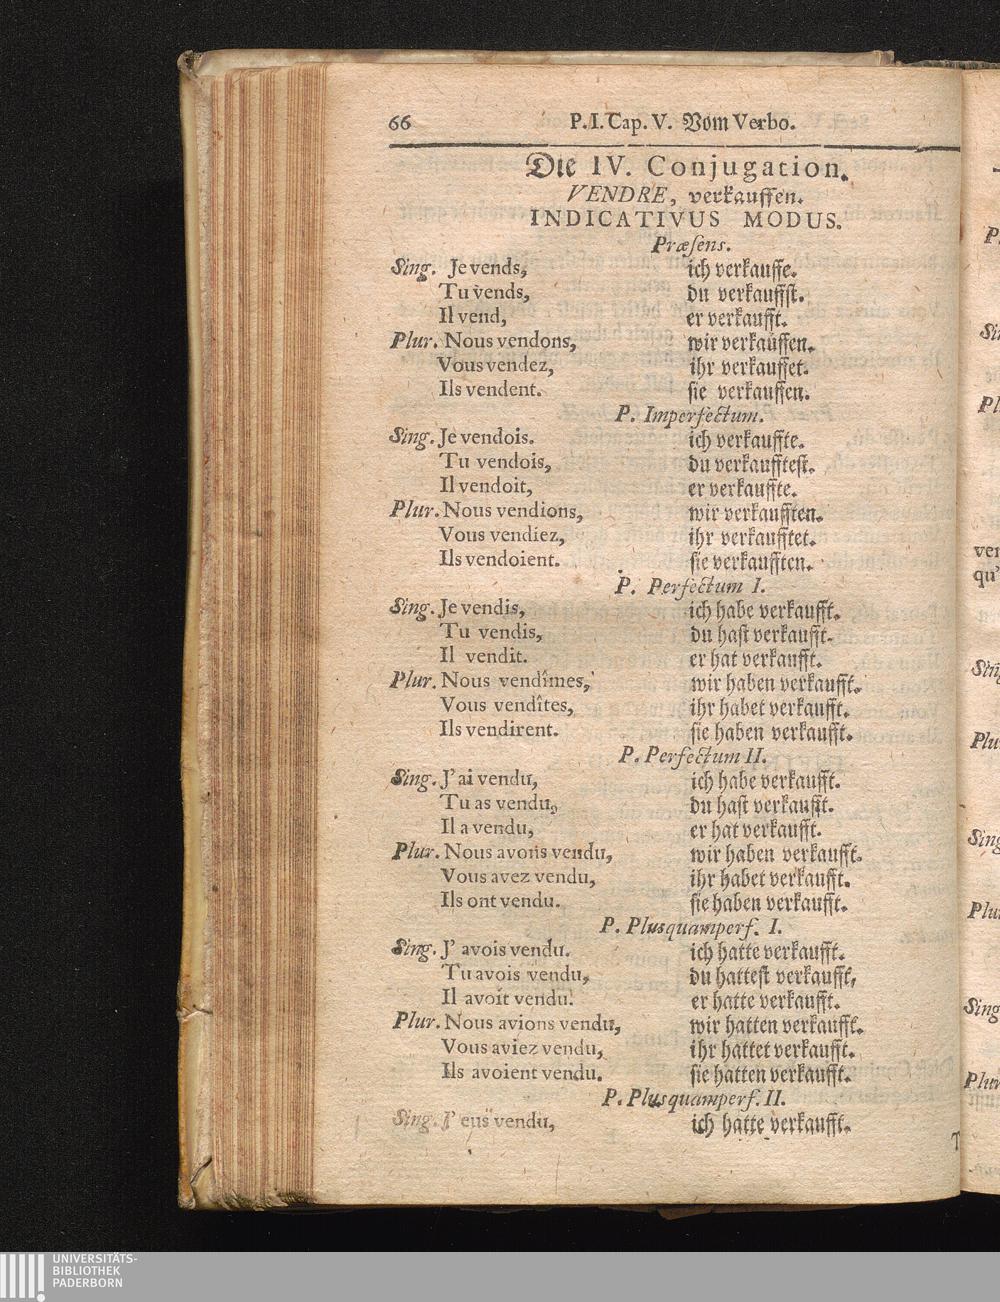 66 P. I. Cap. V. Vom Verbo.
Die IV. Conjugation.
VENDRE, verkauffen.
INDICATIVUS MODUS.
Præsens.
Sing. Je vends, ich verkauffe.
Tu vends, du verkauffst.
Il vend, er verkaufft.
Plur. Nous vendons, wir verkauffen.
Vous vendez, ihr verkauffet.
Ils vendent. sie verkauffen.
P. Imperfectum.
Sing. Je vendois. ich verkauffte.
Tu vendois, du verkaufftest.
Il vendoit, er verkauffte.
Plur. Nous vendions, wir verkaufften.
Vous vendiez, ihr verkaufftet.
Ils vendoient. sie verkaufften.
P. Perfectum I.
Sing. Je vendis, ich habe verkaufft.
Tu vendis, du hast verkaufft.
Il vendit. er hat verkaufft.
Plur. Nous vendîmes, wir haben verkaufft.
Vous vendîtes, ihr habet verkaufft.
Ils vendirent. sie haben verkaufft.
P. Perfectum II.
Sing. J'ai vendu, ich habe verkaufft.
Tu as vendu, du hast verkaufft.
Il a vendu, er hat verkaufft.
Plur. Nous avons vendu, wir haben verkaufft.
Vous avez vendu, ihr habet verkaufft.
Ils ont vendu. sie haben verkaufft.
P. Plusquamperf. I.
Sing. J' avois vendu. ich hatte verkaufft.
Tu avois vendu, du hattest verkaufft,
Il avoit vendu. er hatte verkaufft.
Plur. Nous avions vendu, wir hatten verkaufft.
Vous aviez vendu, ihr hattet verkaufft.
Ils avoient vendu. sie hatten verkaufft.
P. Plusquamperf. II.
Sing. J' eus vendu, ich hatte verkaufft.
UNIVERSITÄTS-
BIBLIOTHEK
PADERBORN